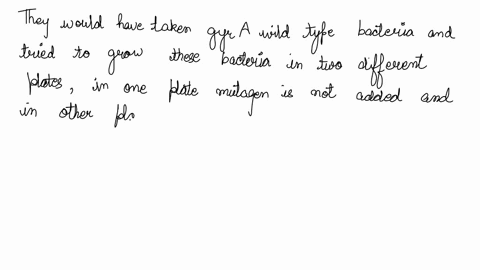 They would have taken gyr A wild type bacteria and
tried to grow these bacteria in two different
plates, in one plate mutagen is not added and
in other pla